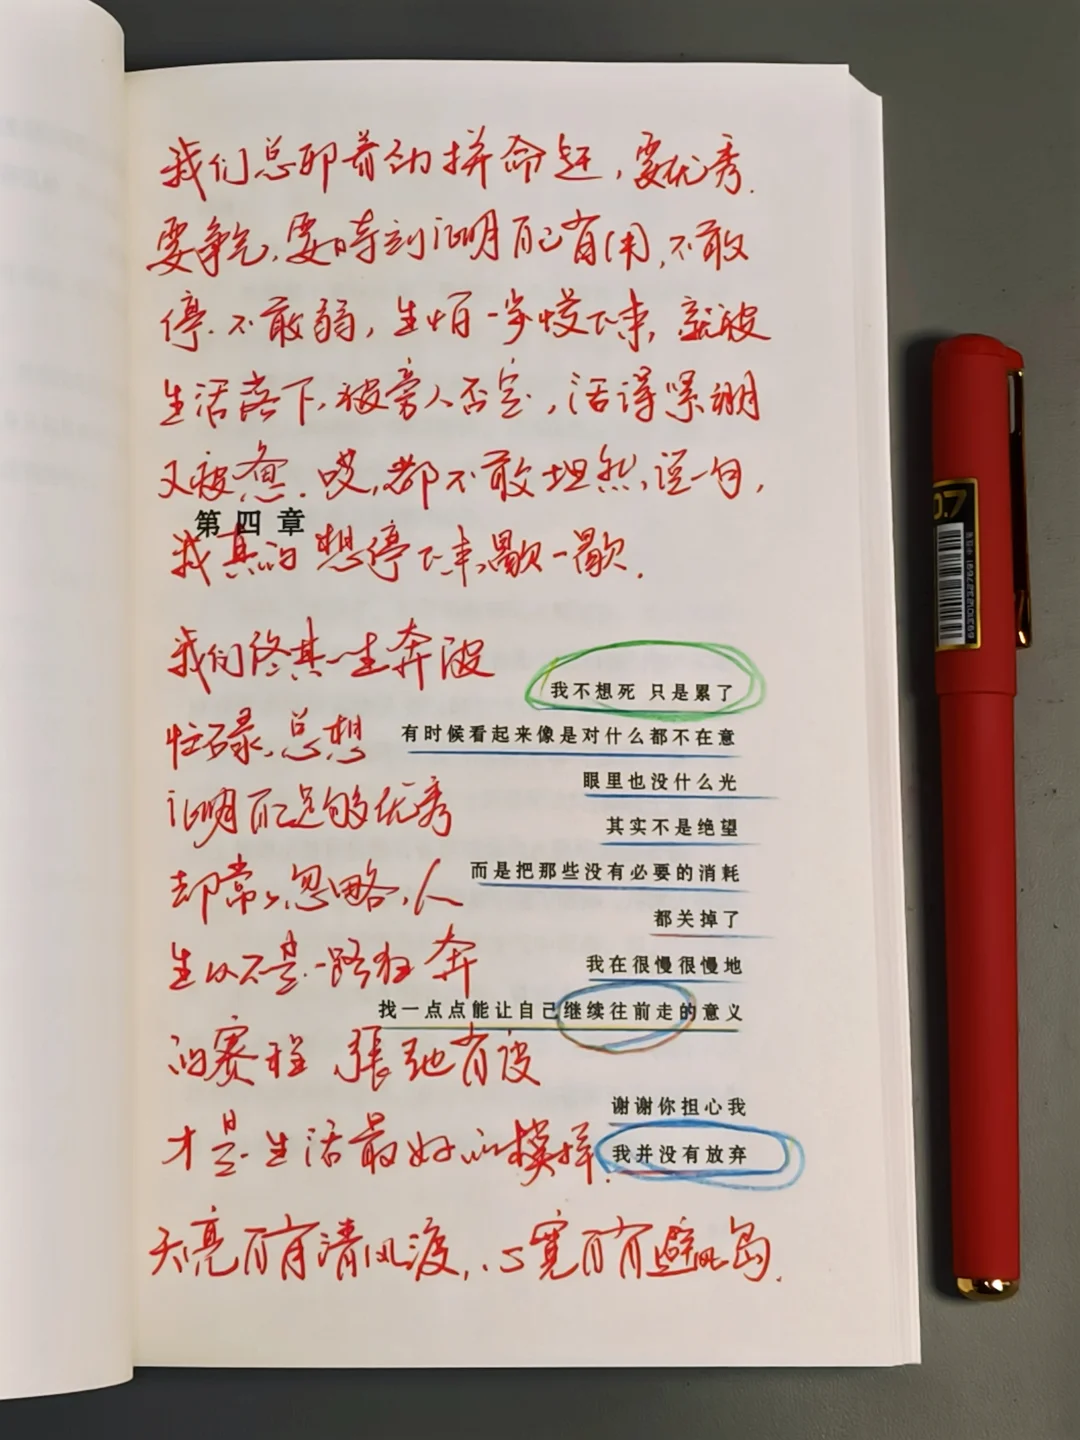 我们总卯着劲拼命赶，要优秀.
要争气，要时刻证明自己有用，不敢
停.不敢弱，生怕一步慢下来，就被
生活落下，被旁人否定，活得紧绷
又疲惫.哎，都不敢坦然说一句，
第四章
我真的想停下来，歇一歇.
我们终其一生奔波
我不想死 只是累了
忙碌，总想
有时候看起来像是对什么都不在意
眼里也没什么光
证明自己足够优秀
其实不是绝望
却常常忽略，人
而是把那些没有必要的消耗
都关掉了
生从不是一路狂奔
我在很慢很慢地
找一点点能让自己继续往前走的意义
的赛程 張弛有度
谢谢你担心我
才是生活最好的模样.
我并没有放弃
天亮自有清风渡，心宽自有避风岛.
0.7
6931012327691